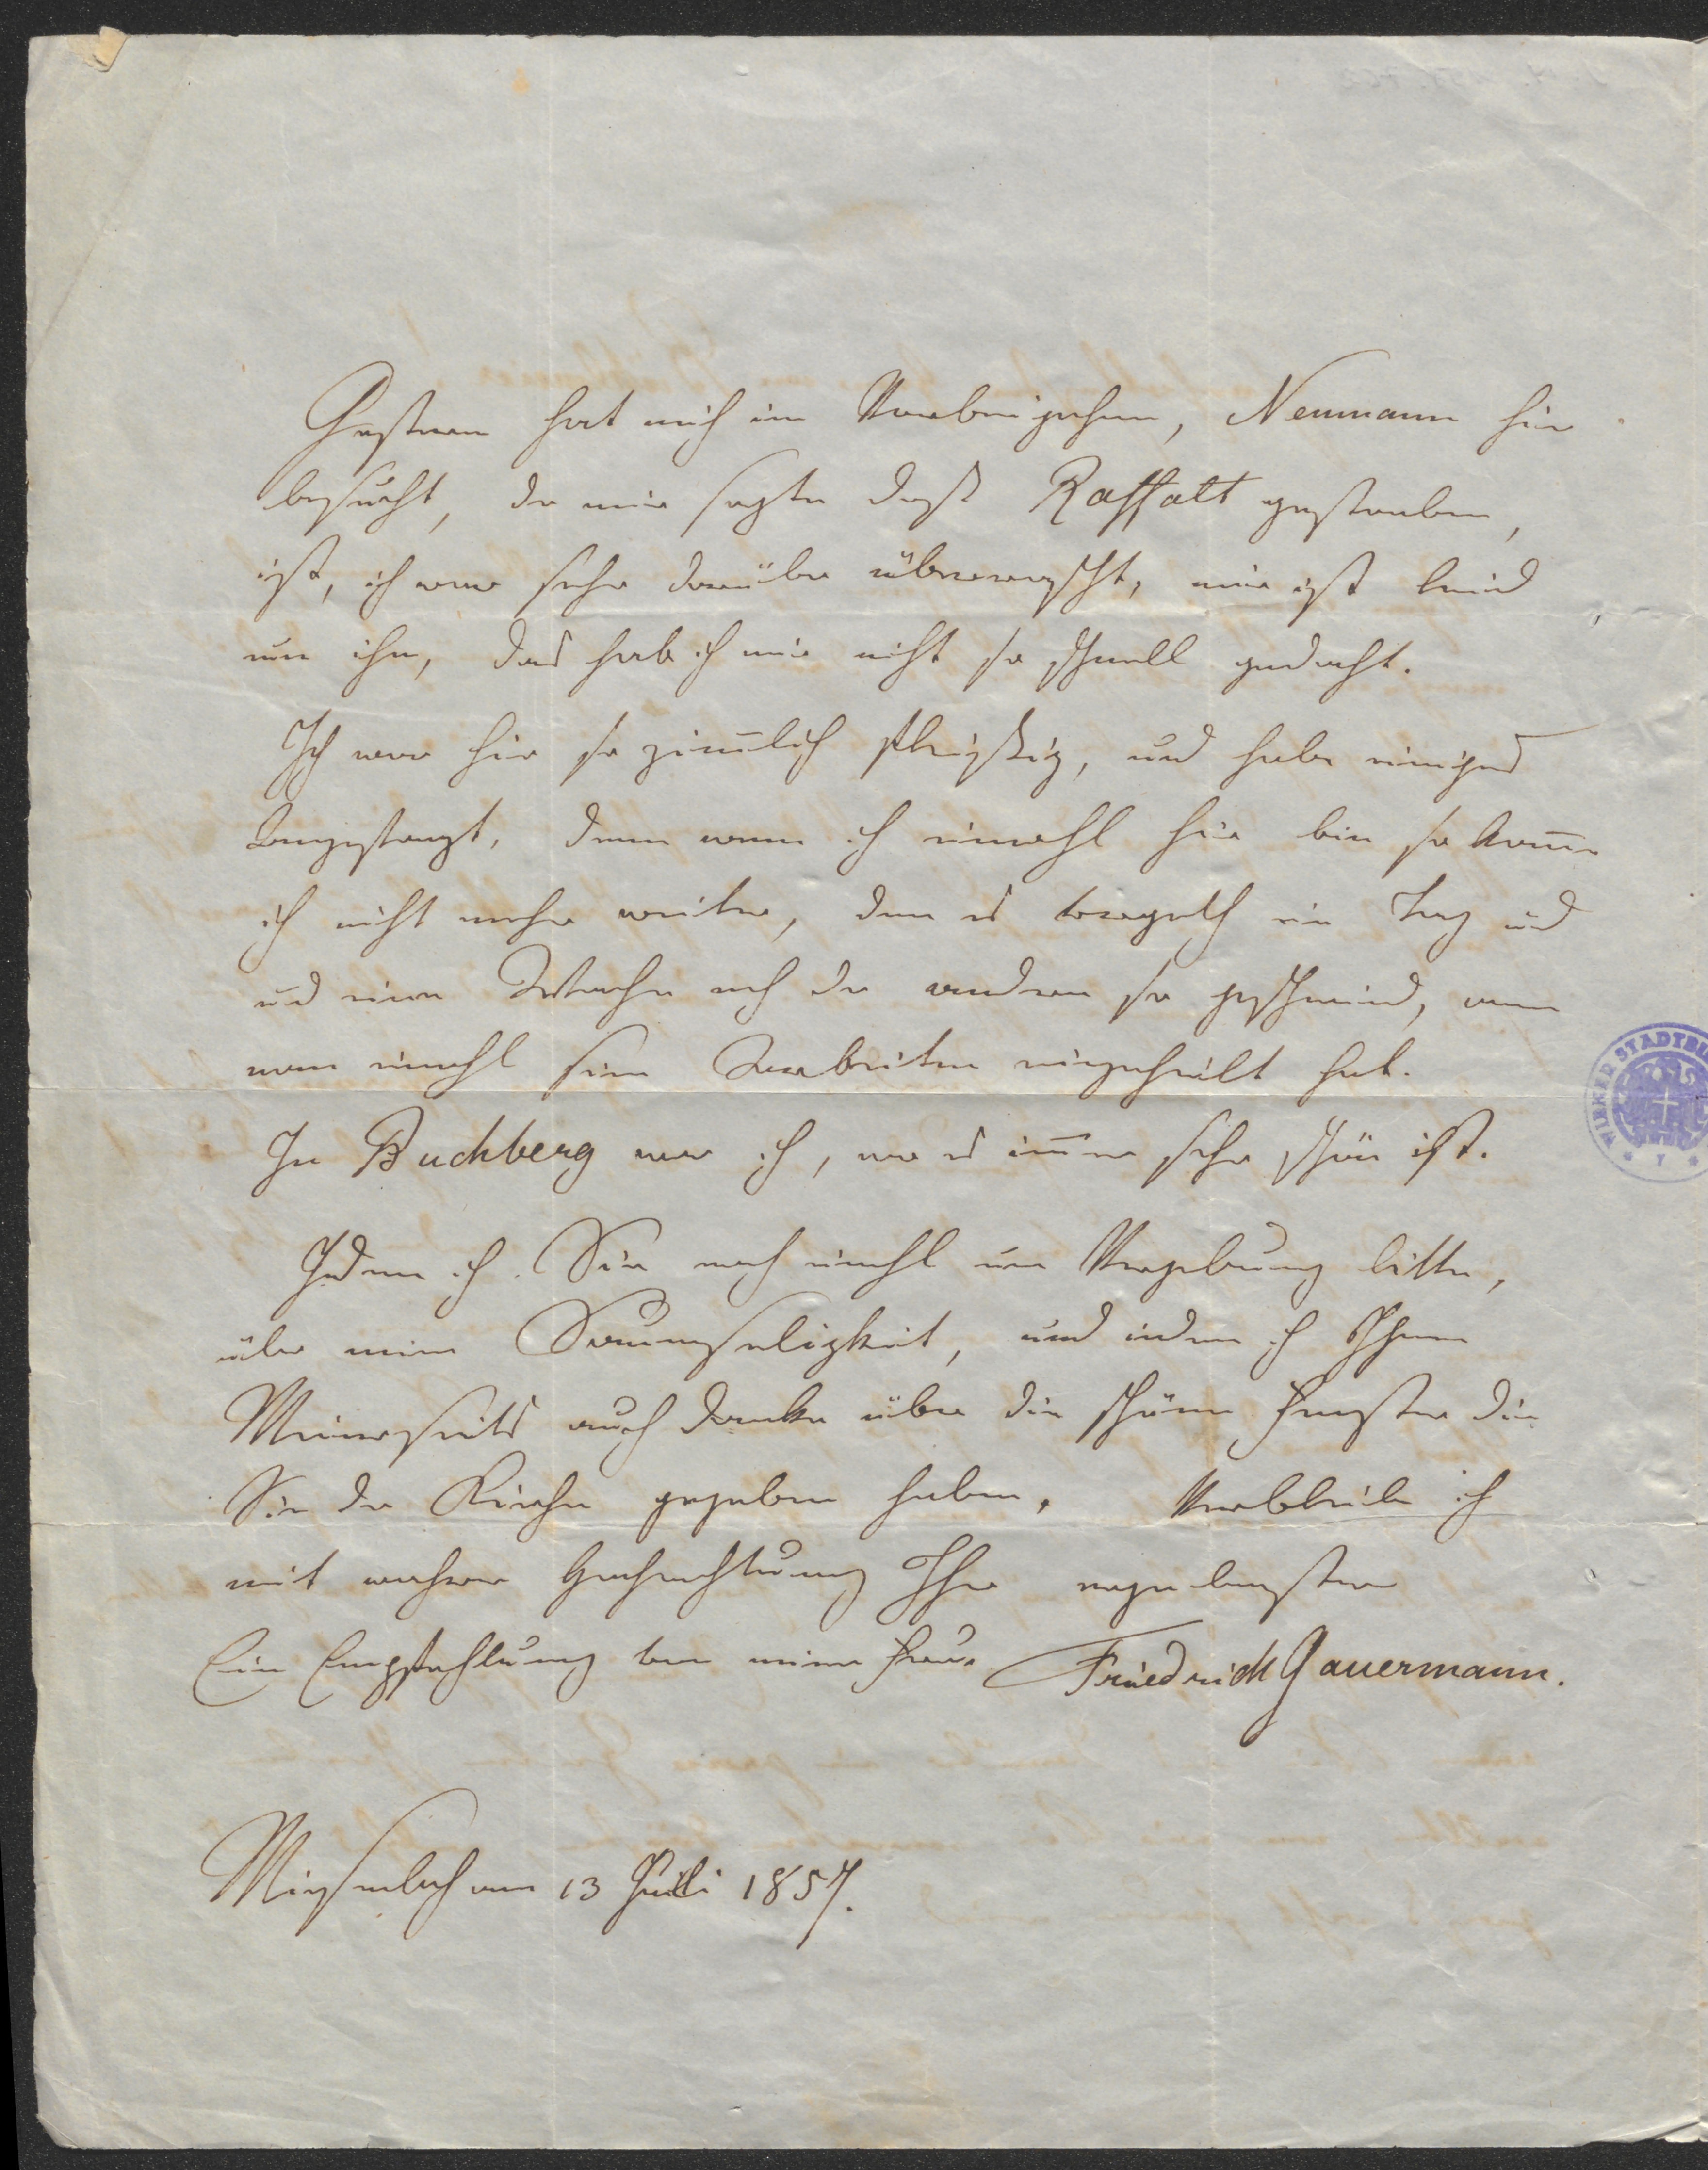 Gestern hat mich im Vorbeigehen, Neumann hier
besucht, der mir sagte daß Raffalt gestorben,
ist, ich war sehr darüber überrascht, mir ist leid
um ihn, das hab ich mir nicht so schnell gedacht.
Ich war hier so zimlich fleißig, und habe einiges
denn wenn ich einmahl hier bin so kome
ich nicht mehr weiter, den es vergeth ein Tag und
und eine Woche nach der anderen so geschwind, wenn
man einmahl sein Arbeiten eingeheilt hat.
In Buchberg war ich, wo es imer sehr schön ist.
Indem ich Sie noch einmahl um Vergebung bitte,
über meine Saumseligkeit, und indem ich Ihnen
Meinerseits auch danke über die schöne Fenster die
Sie der Kirche gegeben haben, Verbleibe ich
mit wahrer Hochachtung Ihr ergebenster
Ein Empfehlung von meine Frau. Friedrich Gauermann.
Miesenbach am 13 Juli 1857.
WIENER STADTBI